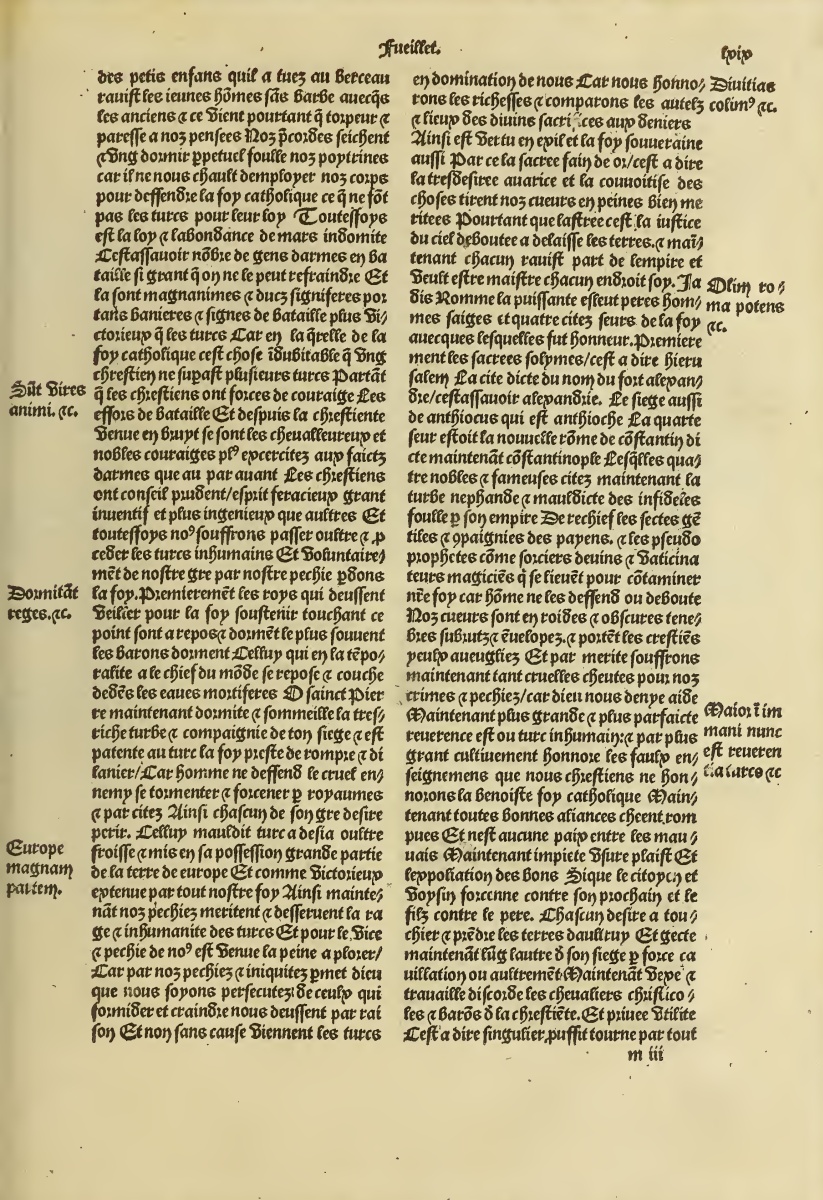 Fueillet.
lxix
des petis enfans quil a tuez au berceau
rauist les ieunes hõmes sãs barbe auecq̃s
les anciens ⁊ ce vient pourtant q̃ torpeur ⁊
paresse a noz pensees Noz p̃cordes seichent
⁊ vng dormir ꝑpetuel foulle noz poytrines
car il ne nous chault demployer noz corps
pour deffendre la foy catholique ce q̃ ne fõt
pas les turcs pour leur loy Toutesfoys
est la loy ⁊ labondance de mars indomite
Cestassauoir nõbre de gens darmes en ba
taille si grant q̃ on ne le peut refraindre Et
la sont magnanimes ⁊ ducz signiferes por
tans banieres ⁊ signes de bataille plus vi⸗
ctorieux q̃ les turcs Car en la q̃relle de la
foy catholique cest chose ĩdubitable q̃ vng
chrestien ne supast plusieurs turcs Partãt
q̃ les chrestiens ont forces de couraige Les
effors de bataille Et despuis la chrestiente
venue en bruyt se sont les cheualleureux et
nobles couraiges plꝰ excercitez aux faictz
darmes que au par auant Les chrestiens
ont conseil prudent/esprit feracieux grant
inuentif et plus ingenieux que aultres Et
toutesfoys noꝰ souffrons passer oultre ⁊ ꝓ
ceder les turcs inhumains Et voluntaire⸗
mẽt de nostre gre par nostre pechie ꝑdons
la foy. Premieremẽt les roys qui deussent
veiller pour la foy soustenir touchant ce
point sont a repos ⁊ dormẽt le plus souuent
les barons dorment Celluy qui en la tẽpo⸗
ralite a le chief du mõde se repose ⁊ couche
dedẽs les eaues mortiferes O sainct Pier
re maintenant dormite ⁊ sommeille la tres⸗
riche turbe ⁊ compaignie de ton siege ⁊ est
patente au turc la foy preste de rompre ⁊ di
lanier/Car homme ne deffend le cruel en⸗
nemy se tormenter ⁊ forcener ꝑ royaumes
⁊ par citez Ainsi chascun de son gre desire
perir. Celluy mauldit turc a desia oultre
froisse ⁊ mis en sa possession grande partie
de la terre de europe Et comme victorieux
extenue par tout nostre foy Ainsi mainte⸗
nãt noz pechiez meritent ⁊ desseruent la ra
ge ⁊ inhumanite des turcs Et pour le vice
⁊ pechie de noꝰ est venue la peine a plorer/
Car par noz pechiez ⁊ iniquitez ꝑmet dieu
que nous soyons persecutez de ceulx qui
formider et craindre nous deussent par rai
son Et non sans cause viennent les turcs
Sũt vires
animi. ⁊c.
Dormitãt
reges. ⁊c.
Europe
magnam
partem.
en domination de nous Car nous honno⸗
rons les richesses ⁊ comparons les autelz
⁊ lieux des diuins sacrifices aux deniers
Ainsi est vertu en exil et la foy souueraine
aussi Par ce la sacree fain de or/cest a dire
la tresdesiree auarice et la couuoitise des
choses tirent noz cueurs en peines bien me
ritees Pourtant que lastree cest la iustice
du ciel deboutee a delaisse les terres. ⁊ maĩ⸗
tenant chacun rauist part de lempire et
veult estre maistre chacun endroit soy. Ja
dis Romme la puissante esleut peres hom⸗
mes saiges et quatre citez seurs de la foy
auecques lesquelles fut honneur. Premiere
ment les sacrees solymes/cest a dire hieru
salem La cite dicte du nom du fort alexan⸗
dre/cestassauoir alexandrie. Le siege aussi
de anthiocus qui est anthioche La quarte
seur estoit la nouuelle rõme de cõstantin di
cte maintenãt cõstantinople Lesq̃lles qua⸗
tre nobles ⁊ fameuses citez maintenant la
turbe nephande ⁊ mauldicte des infideles
foulle ꝑ son empire De rechief les sectes gẽ
tiles ⁊ ꝯpaignies des payens. ⁊ les pseudo
prophetes cõme sorciers deuins ⁊ vaticina
teurs magiciẽs q̃ se lieuẽt pour cõtaminer
nr̃e foy car hõme ne les deffend ou deboute
Noz cueurs sont en roides ⁊ obscures tene⸗
bres subrutz ⁊ ẽuelopez. ⁊ portẽt les crestiẽs
yeulx aueuglez Et par merite souffrons
maintenant tant cruelles cheutes pour noz
crimes ⁊ pechiez/car dieu nous denye aide
Maintenant plus grande ⁊ plus parfaicte
reuerence est ou turc inhumain: ⁊ par plus
grant cultiuement honnore les faulx en⸗
seignemens que nous chrestiens ne hon⸗
norons la benoiste foy catholique Main⸗
tenant toutes bonnes aliances cheent rom
pues Et nest aucune paix entre les mau⸗
uais Maintenant impiete vsure plaist Et
lexpoliation des bons Sique le citoyen et
voysin forcenne contre son prochain et le
filz contre le pere. Chascun desire a tou⸗
chier ⁊ prẽdre les terres daultruy Et gecte
maintenant lũg lautre d̃ son siege ꝑ force ca
uillation ou aultremẽt Maintenãt vexe ⁊
trauaille discorde les cheualiers christico⸗
les ⁊ barõs d̃ la chrestiẽte. Et priuee vtilite
Cest a dire singulier prouffit tourne par tout
Diuitias
colimꝰ ⁊c.
Olim ro⸗
ma potens
⁊c.
Maior ĩ im
mani nunc
est reueren
tia turco ⁊c
m iii